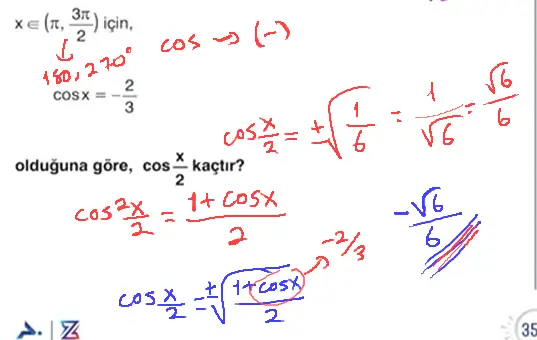 x ∈ (π, 3π/2) için,
cos → (-)
180, 270°
cosx = -2/3
cos x/2 = ±√(1/6) = 1/√6 = √6/6
olduğuna göre, cos x/2 kaçtır?
cos² x/2 = (1 + cosx)/2
-√6/6
-2/3
cos x/2 = ±√((1+cosx)/2)
35